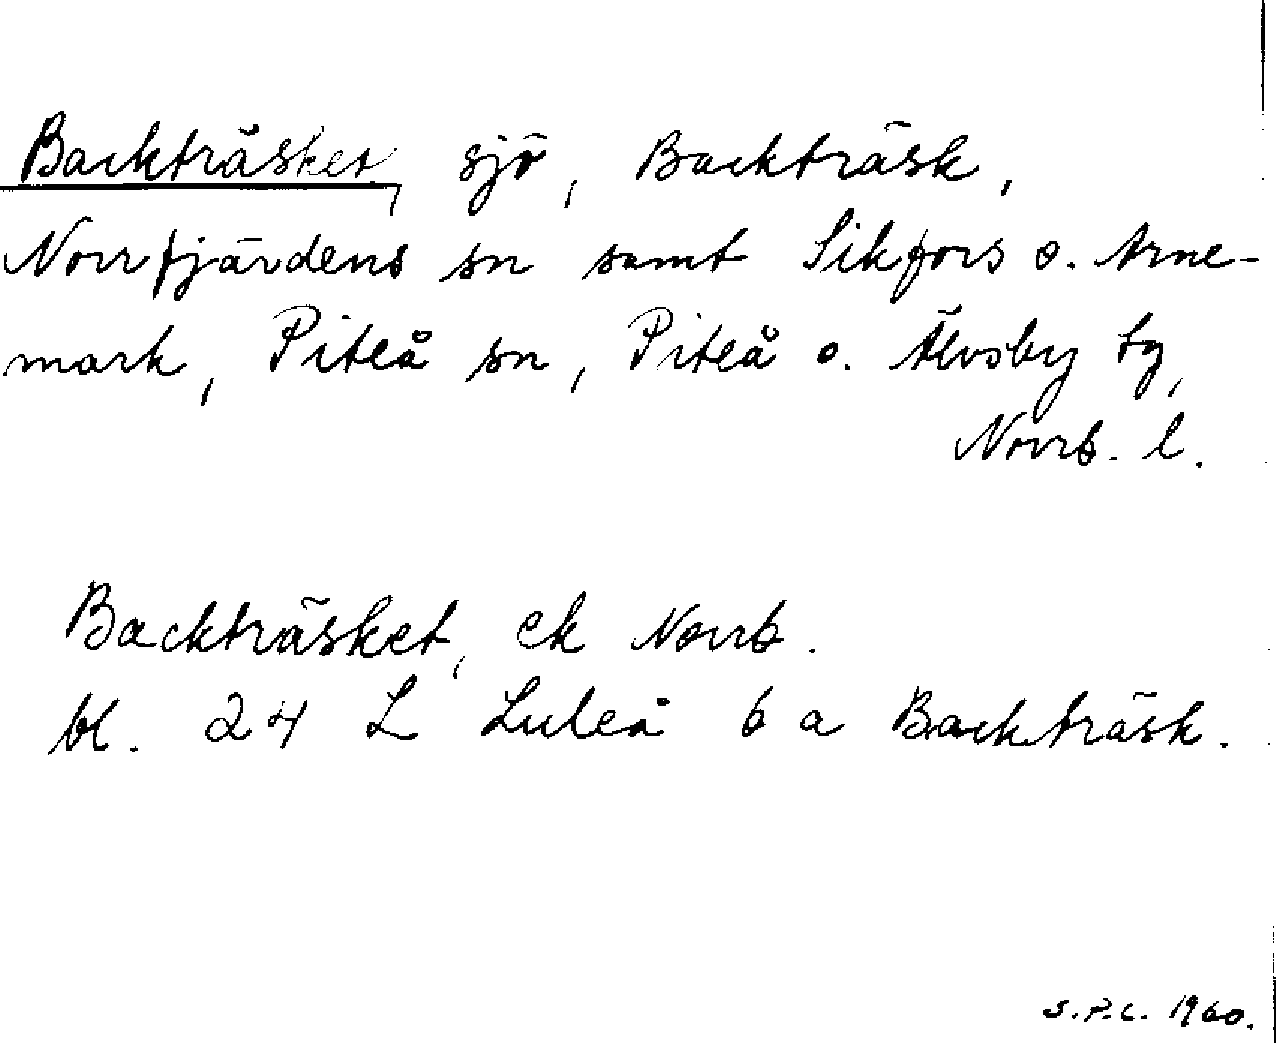 Backträsket, sjö, Backträsk,
Norrfjärdens sn samt Sikfors o. Arne-
mark, Piteå sn, Piteå o. Älvsby tg,
Norrb. l.
Backträsket, ek Norrb.
bl. 24 L Luleå 6 a Backträsk.
S.P.C. 1960.